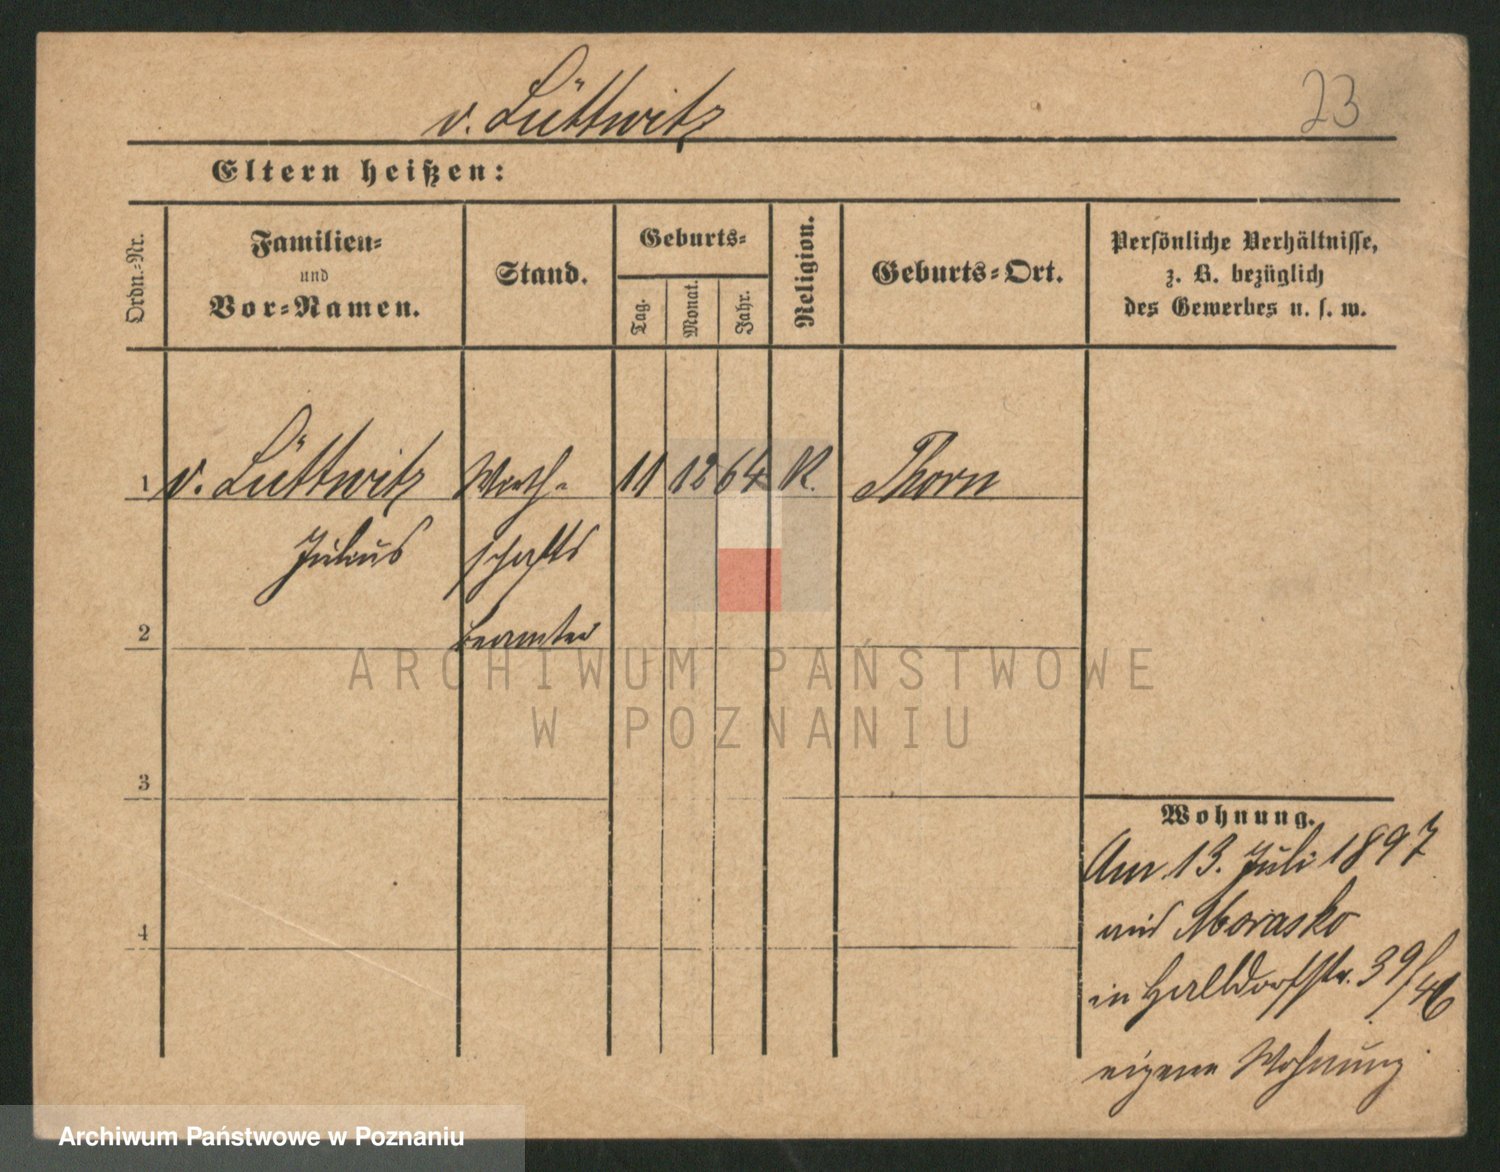 v. Lüttwitz
23
Eltern heißen:
Ordn.-Nr.
Familien-
und
Vor-Namen.
Stand.
Geburts-
Tag.
Monat.
Jahr.
Religion.
Geburts-Ort.
Persönliche Verhältnisse,
z. B. bezüglich
des Gewerbes u. s. w.
1 v. Lüttwitz Wirth- 11 12 64 K. Thorn
Julius schafts
2 beamter
3
4
Wohnung.
Am 13. Juli 1897
aus Morasko
in Halldorfstr. 39/40
eigene Wohnung
ARCHIWUM PAŃSTWOWE
W POZNANIU
Archiwum Państwowe w Poznaniu